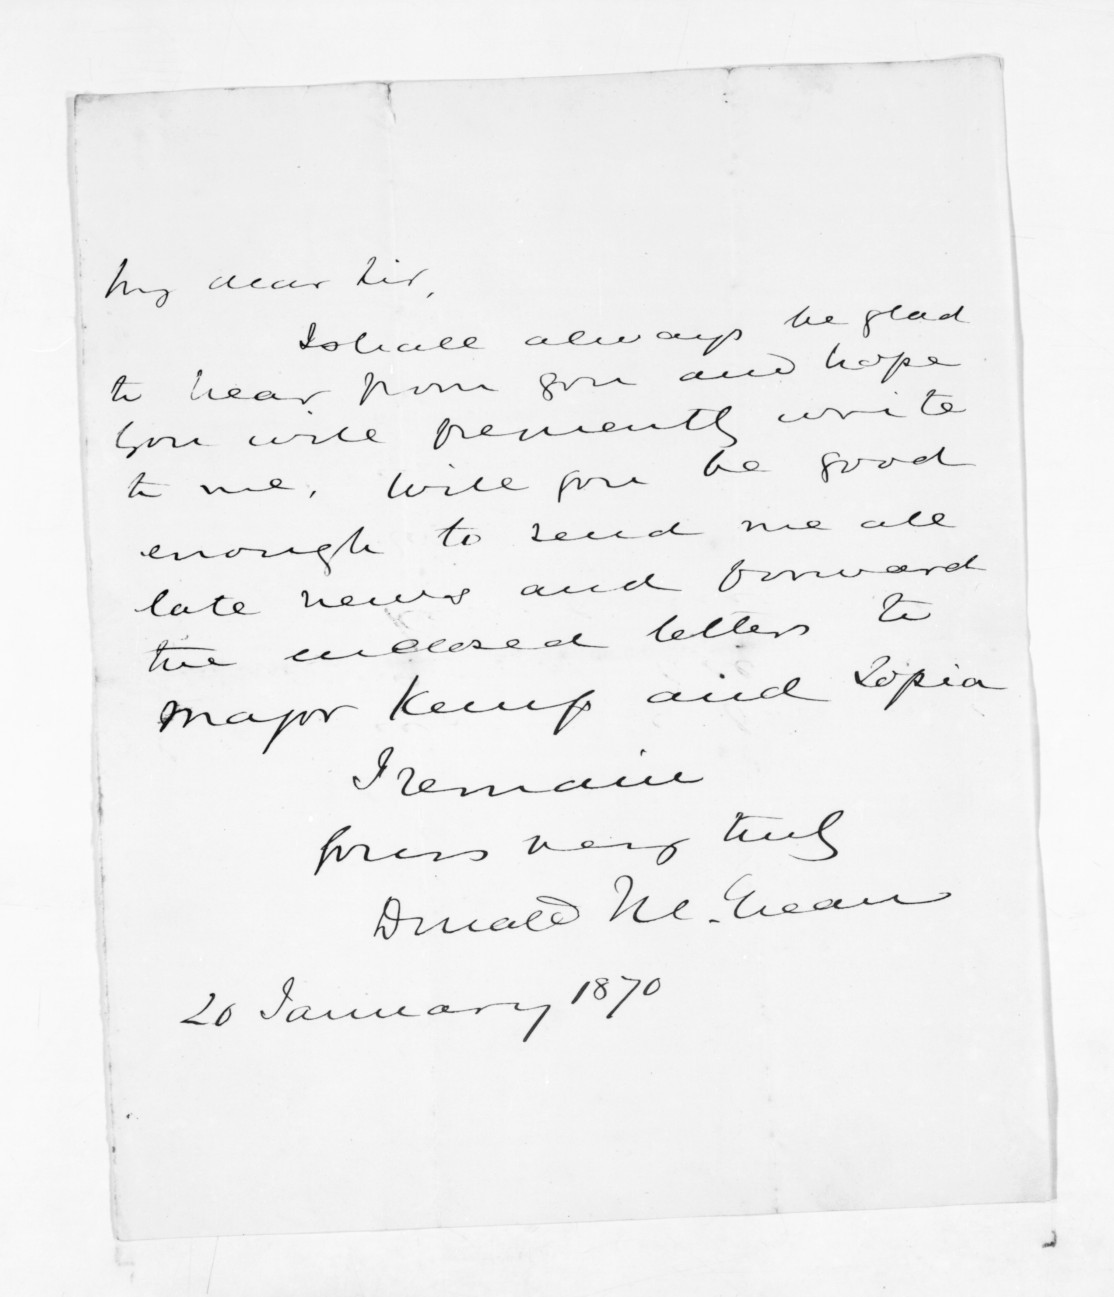 My dear Sir,
I shall always be glad
to hear from you and hope
you will frequently write
to me. Will you be good
enough to send me all
late news and forward
the enclosed letters to
Major Kemp and Topia
I remain
Yours very truly
Donald McLean
20 January 1870